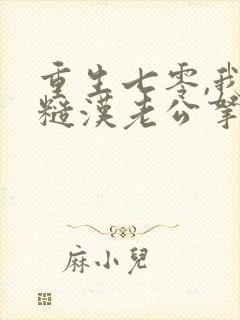 重生七零,我
糙漢老公寧
麻小兒